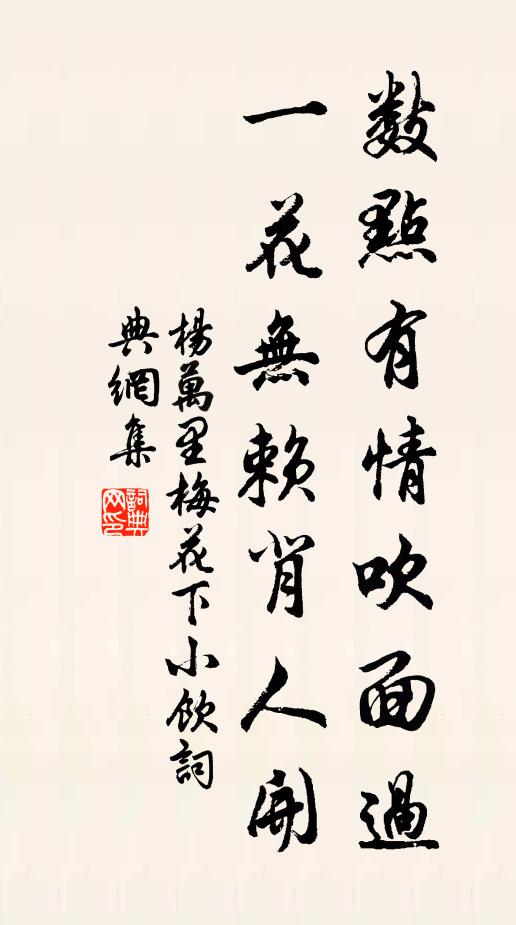 數點有情吹面過
一花無賴背人開
楊萬里梅花下小飲詞
典網集
詞典網印